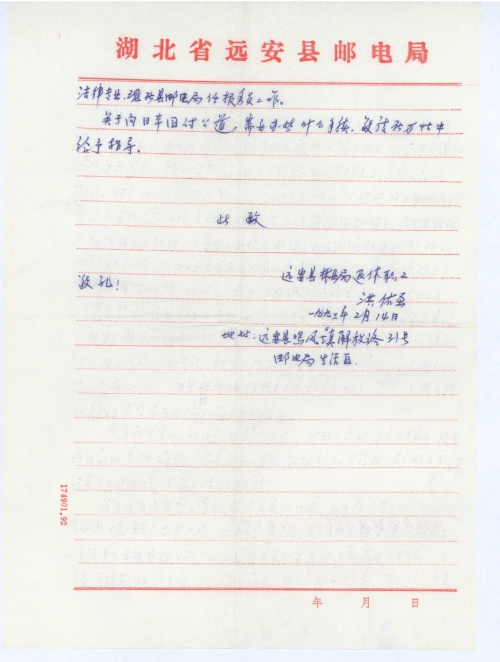 湖北省远安县邮电局
法律专业.现为县邮电局任报务员工作。
关于向日本国讨公道,需要办些什么手续,敬请于百忙中
给予指导。
此致
敬礼!
远安县邮电局退休职工
洪佑
一九九三年2月14日
地址:远安县鸣凤镇解放路31号
邮电局生活区.
174901.92
年 月 日